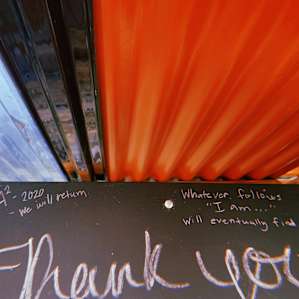 2 - 2020
- we will return
Whatever follows
"I am..."
will eventually find
Thank you